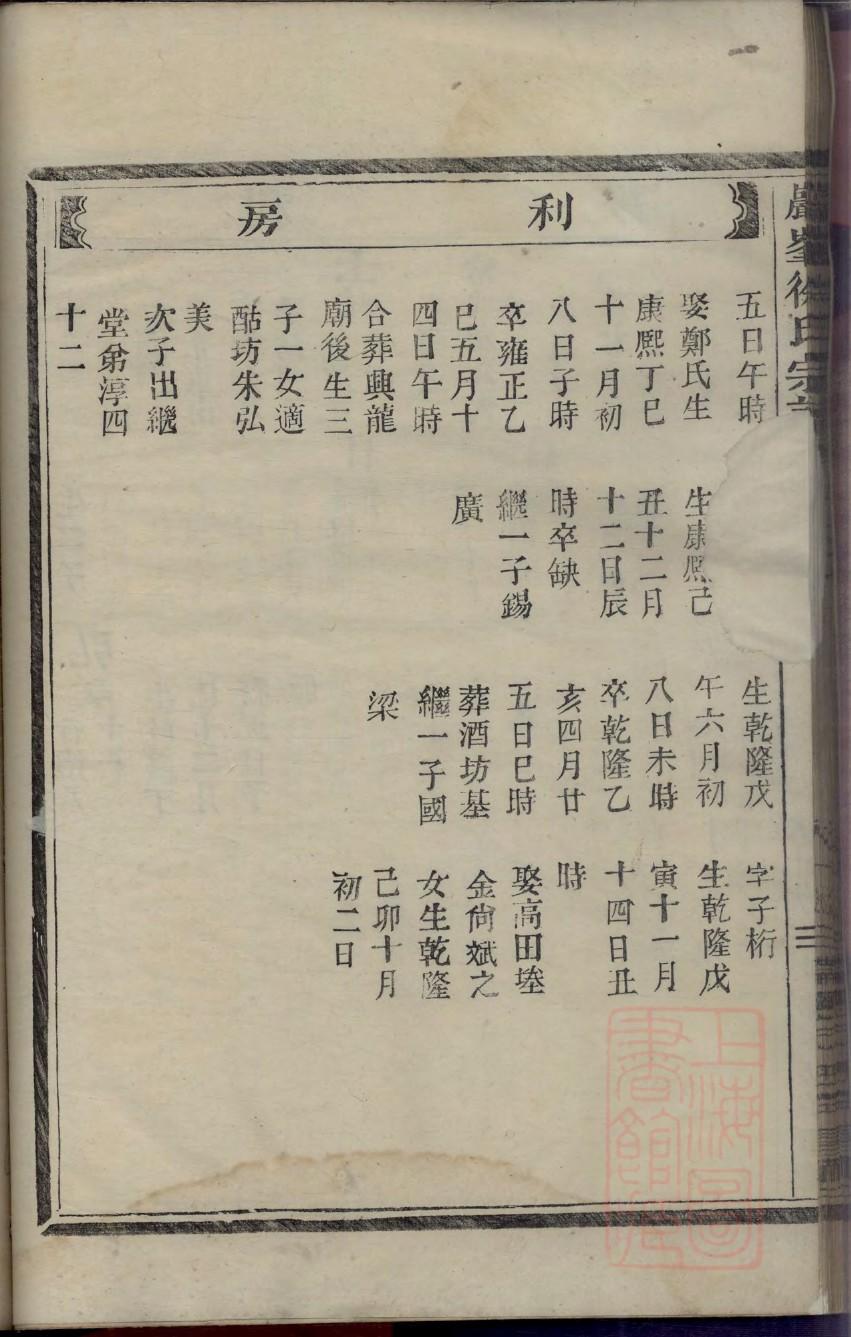 利房
五日午時
娶鄭氏生
康熙丁巳
十一月初
八日子時
卒雍正乙
巳五月十
四日午時
合葬興龍
廟後生三
子一女適
酤坊朱弘
美
次子出繼
堂弟淳四
十二
生康熙己
丑十二月
十二日辰
時卒缺
繼一子錫
廣
生乾隆戊
午六月初
八日未時
卒乾隆乙
亥四月廿
五日巳時
葬酒坊基
繼一子國
梁
字子桁
生乾隆戊
寅十一月
十四日丑
時
娶高田塍
金尙斌之
女生乾隆
己卯十月
初二日
徐氏宗
上海圖書館藏